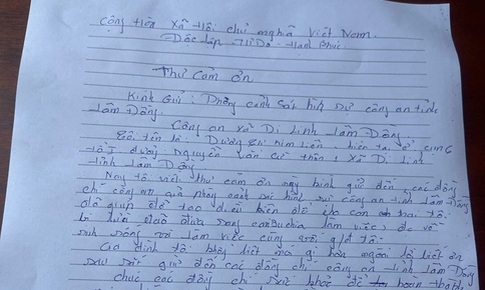 Cộng Hòa Xã Hội chủ nghĩa Việt Nam
Độc lập Tự Do Hạnh Phúc
Thư Cảm ơn
Kính Gửi: Phòng cảnh sát hình sự công an tỉnh
Lâm Đồng.
Công an xã Di Linh Lâm Đồng.
Tôi tên là: Dương Thị Kim Liên, hiện tại ở
tổ 1 đường Nguyễn Văn Cừ thôn 1 xã Di Linh
tỉnh Lâm Đồng
Nay tôi viết thư cảm ơn này kính gửi đến các đồng
chí công an phòng cảnh sát hình sự công an tỉnh Lâm Đồng
đã giúp đỡ tạo điều kiện cho con trai tôi
bị lừa đảo đưa sang campuchia làm việc, được về
sinh sống và làm việc cùng với g/đ tôi.
Gia đình tôi không biết nói gì hơn ngoài lời biết ơn
sâu sắc gửi đến các đồng chí công an tỉnh Lâm Đồng
chúc các đồng chí sức khỏe để hoàn thành